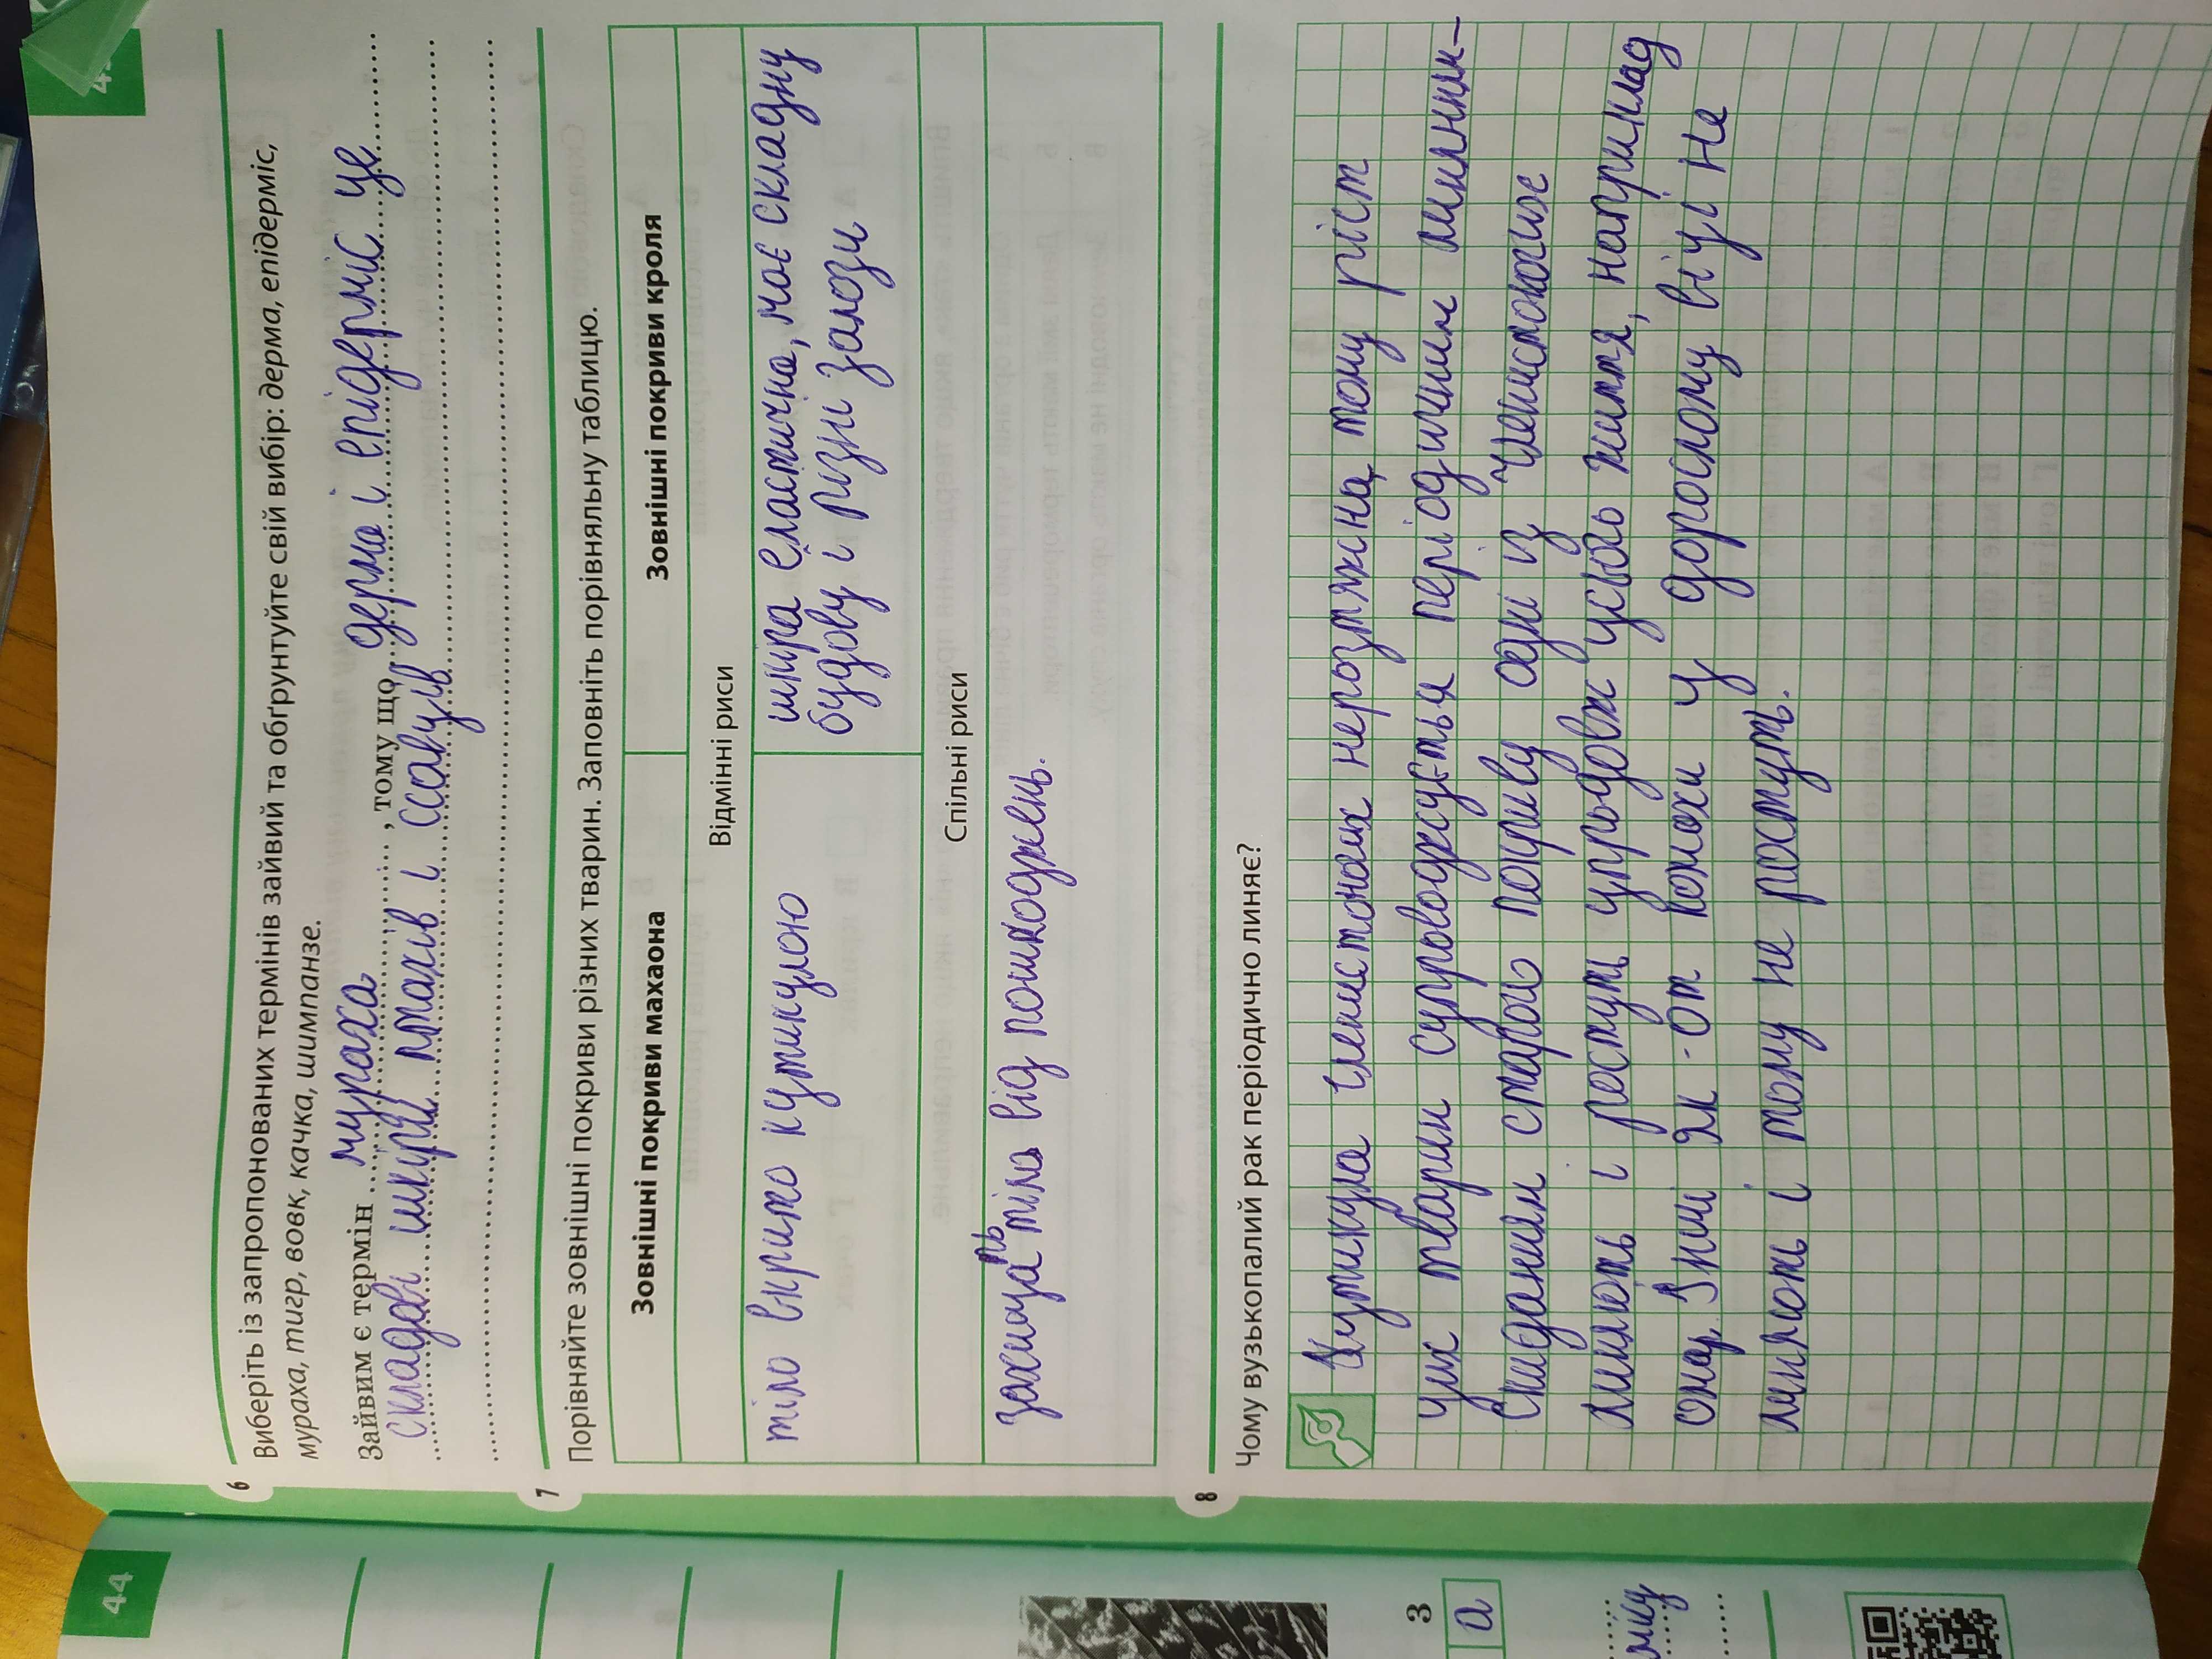 6
Виберіть із запропонованих термінів зайвий та обґрунтуйте свій вибір: дерма, епідерміс,
мураха, тигр, вовк, качка, шимпанзе.
Зайвим є термін мураха, тому що дерма і епідерміс це
складові шкіри птахів і ссавців
7
Порівняйте зовнішні покриви різних тварин. Заповніть порівняльну таблицю.
Зовнішні покриви махаона
Зовнішні покриви кроля
Відмінні риси
тіло вкрито кутикулою
шкіра еластична, має складну
будову і різні залози
Спільні риси
захищають тіло від пошкоджень.
8
Чому вузькопалий рак періодично линяє?
Кутикула членистоногих нерозтяжна, тому ріст
цих тварин супроводжується періодичним линянн-
Скиданням старого покриву одні із Членистоногих
линяють і ростуть упродовж усього життя, наприклад
Інші як-от комахи у дорослому віці не
линяють і тому не ростуть.
44
3
а